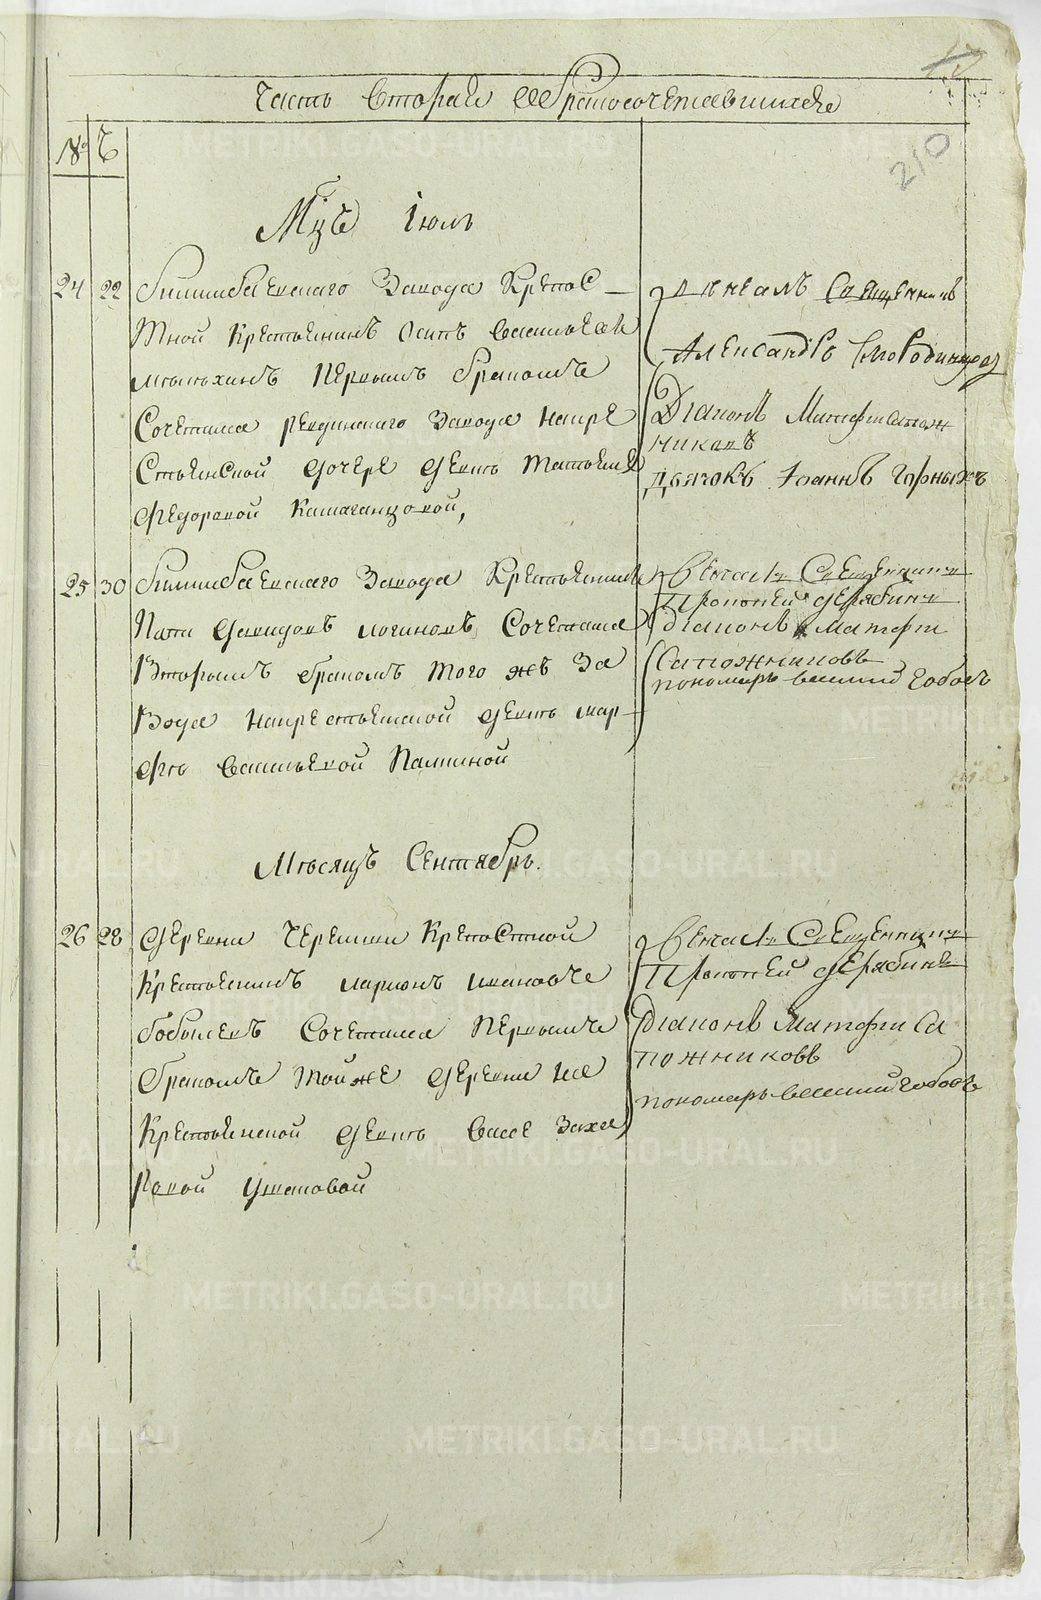 Часть вторая о бракосочетавшихся
210
№ Ч
Мцъ Іюль
24 22 Билимбаевскаго Завода Крепос-
тной Крестьянинъ Осипъ васильевъ
первымъ бракомъ
Сочетался Ревдинскаго Завода на кре
стьянской дочере девить татьяне
Федоровой
Венчалъ Священникъ
Александръ Смородинцовъ
Діаконъ Матфи Сапож
никовъ
Дьячокъ Іоаннъ Горныхъ
25 30 Билимбаевскаго Завода Крестьянинъ
давидовъ логиновъ Сочетался
Вторымъ бракомъ того жъ За
вода на крестьянской девить мар-
фѣ васильевой Палкиной
Венчалъ Священникъ
Прокопей Дерябинъ
Діаконъ Матфги
Сапожниковъ
пономарь василий
Мѣсяцъ Сентябрь.
26 28 Деревни Черемши Крепостной
Крестьянинъ ларионъ ивановъ
бобылевъ Сочетался первымъ
бракомъ той же деревни на
Крестьянской девить вассе Заха
ровой Ушаковой
Венчалъ Священникъ
Прокопей Дерябинъ
Діаконъ Матфги Са
пожниковъ
пономарь василий
METRIKI.GASO-URAL.RU